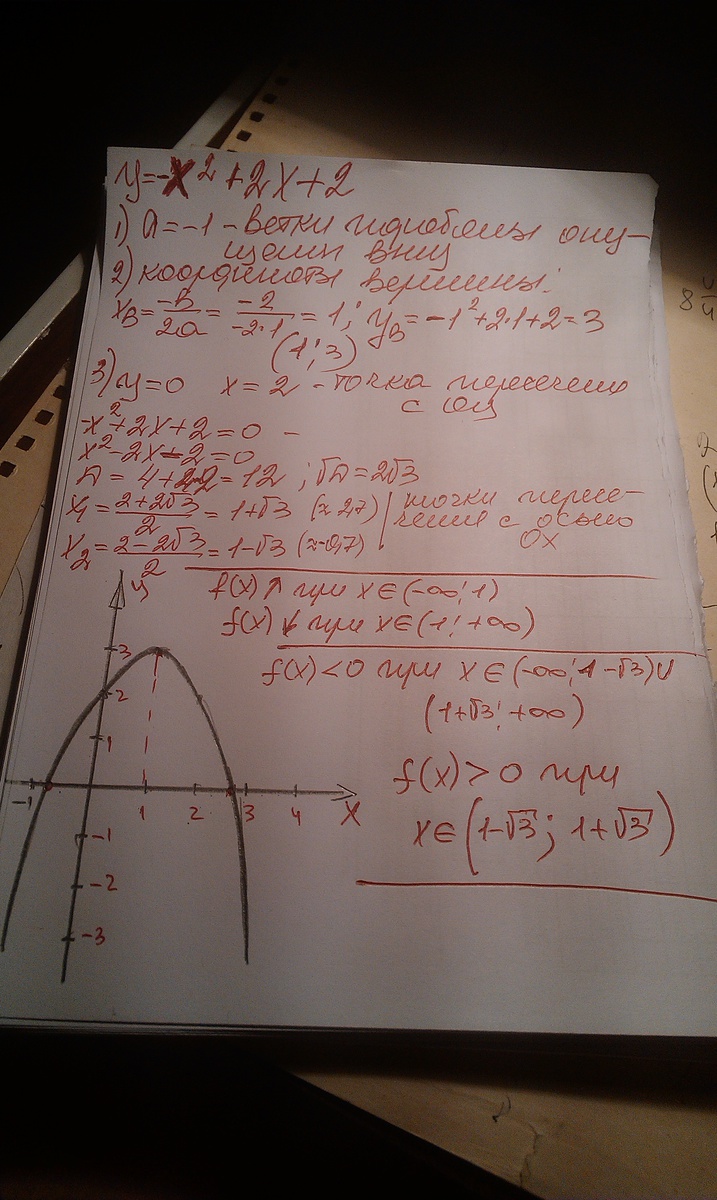 y=-x²+2x+2
1) a=-1 - ветки параболы опу-
щены вниз
2) координаты вершины:
xв = -в/2a = -2/-2·1 = 1; yв = -1²+2·1+2=3
(1; 3)
3) y=0 x=2 - точка пересечения
с оу
-x²+2x+2=0 -
x²-2x-2=0
D = 4+4·2=12 ; √D=2√3
x₁ = 2+2√3/2 = 1+√3 (≈2,7) | точки пересе-
чения с осью
OX
x₂ = 2-2√3/2 = 1-√3 (≈-0,7)
f(x)↑ при x∈(-∞;1)
f(x)↓ при x∈(1; +∞)
f(x)<0 при x∈(-∞;1-√3)∪
(1+√3; +∞)
f(x)>0 при
x∈(1-√3; 1+√3)
y
3
2
1
-1 1 2 3 4 X
-1
-2
-3